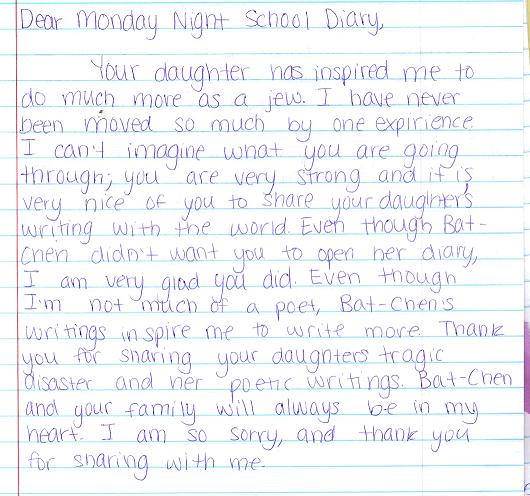 Dear Monday Night School Diary,
Your daughter has inspired me to
do much more as a jew. I have never
been moved so much by one expirience.
I can't imagine what you are going
through; you are very strong and it is
very nice of you to share your daughter's
writing with the world. Even though Bat-
Chen didn't want you to open her diary,
I am very glad you did. Even though
I'm not much of a poet, Bat-Chen's
writings inspire me to write more. Thank
you for sharing your daughters tragic
disaster and her poetic writings. Bat-Chen
and your family will always be in my
heart. I am so sorry, and thank you
for sharing with me.